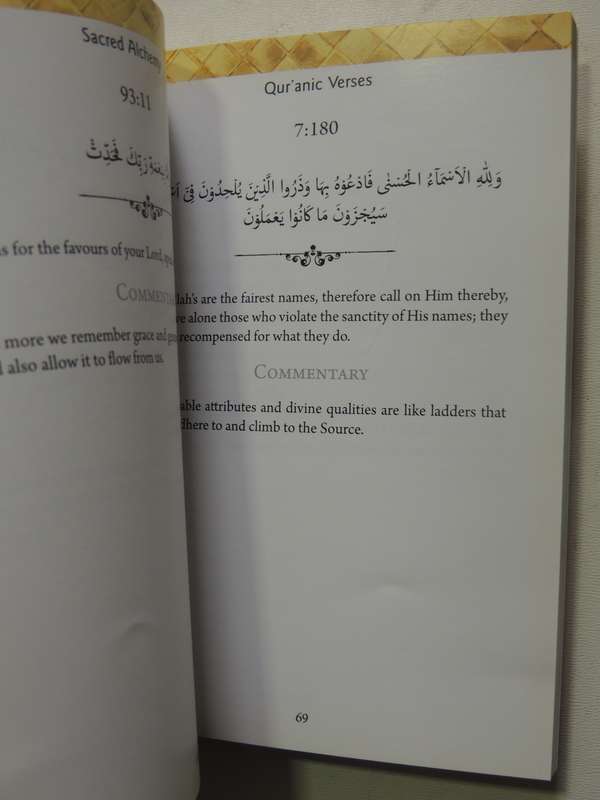 Sacred Alchemy
93:11
رَبِّكَ فَحَدِّثْ
for the favours of your Lord,
more we remember grace and
also allow it to flow from us.
Qur'anic Verses
7:180
وَلِلّٰهِ الْاَسْمَآءُ الْحُسْنٰى فَادْعُوْهُ بِهَا وَذَرُوا الَّذِيْنَ يُلْحِدُوْنَ فِىْٓ
سَيُجْزَوْنَ مَا كَانُوْا يَعْمَلُوْنَ
are the fairest names, therefore call on Him thereby,
alone those who violate the sanctity of His names; they
recompensed for what they do.
Commentary
attributes and divine qualities are like ladders that
to and climb to the Source.
69